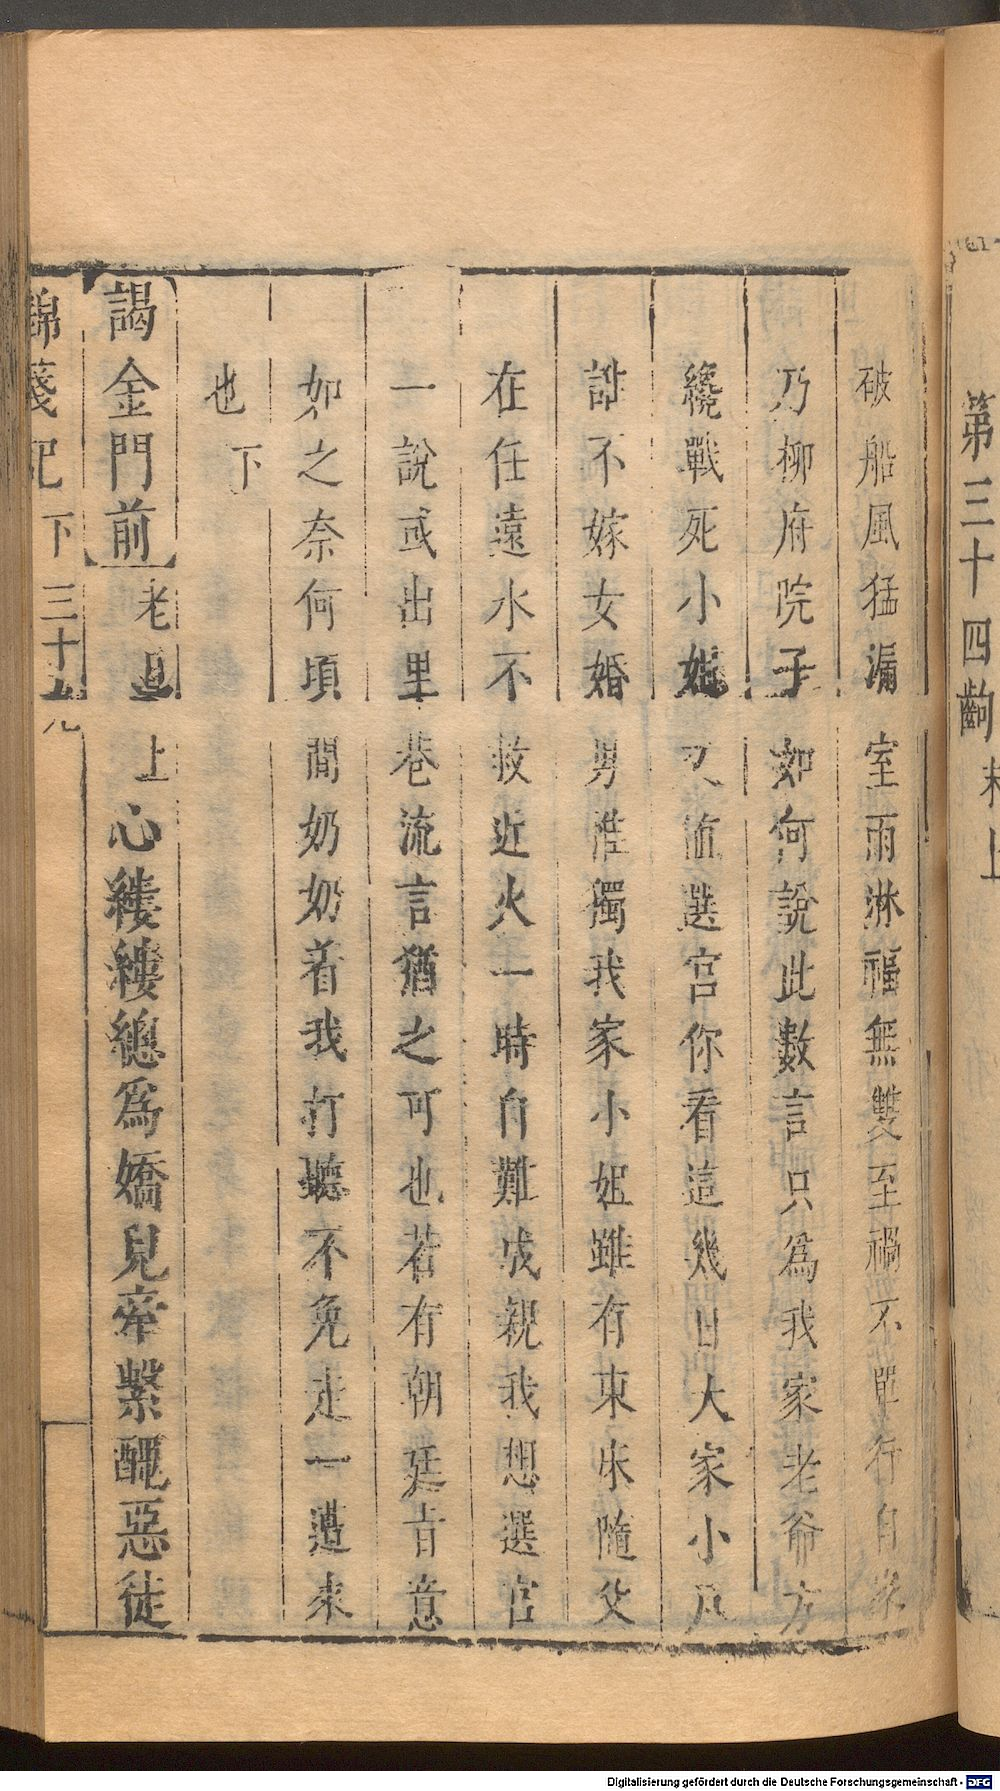 第三十四齣 末上
破船風猛漏室雨淋福無雙至禍不單行自家
乃柳府院子如何說此數言只為我家老爺方
纔戰死小姐又値選宮你看這幾日大家小戶
誰不嫁女婚男惟獨我家小姐雖有東床隨父
在任遠水不救近火一時自難成親我想選官
一說或出里巷流言猶之可也若有朝廷旨意
如之奈何頃間奶奶着我打聽不免走一遭來
也 下
【謁金門前】老旦上心縷縷總為嬌兒牽繫醜惡徒
錦箋記 下 三十九
Digitalisierung gefördert durch die Deutsche Forschungsgemeinschaft - DFG